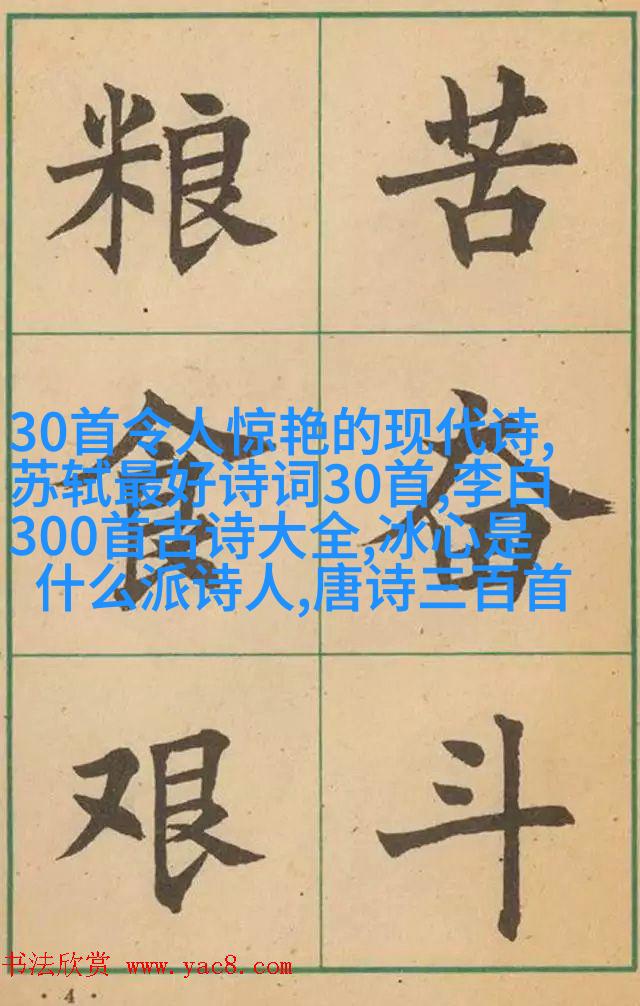 粮食艰
苦奋斗
30首令人惊艳的现代诗,
苏轼最好诗词30首,李白
300首古诗大全,冰心是
什么派诗人,唐诗三百首
书法欣赏 www.yac8.com
· 4 ·